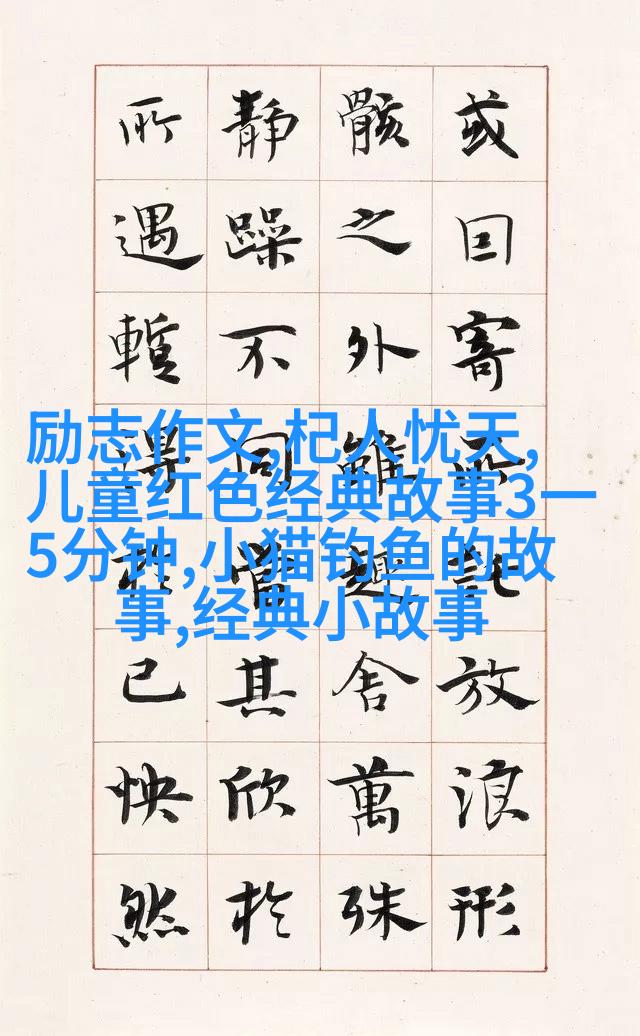 励志作文,杞人忧天,
儿童红色经典故事3一
5分钟,小猫钓鱼的故
事,经典小故事
或因寄所託放浪形
骸之外雖趣舍萬殊
靜躁不同當其欣於
所遇暫得於己怏然